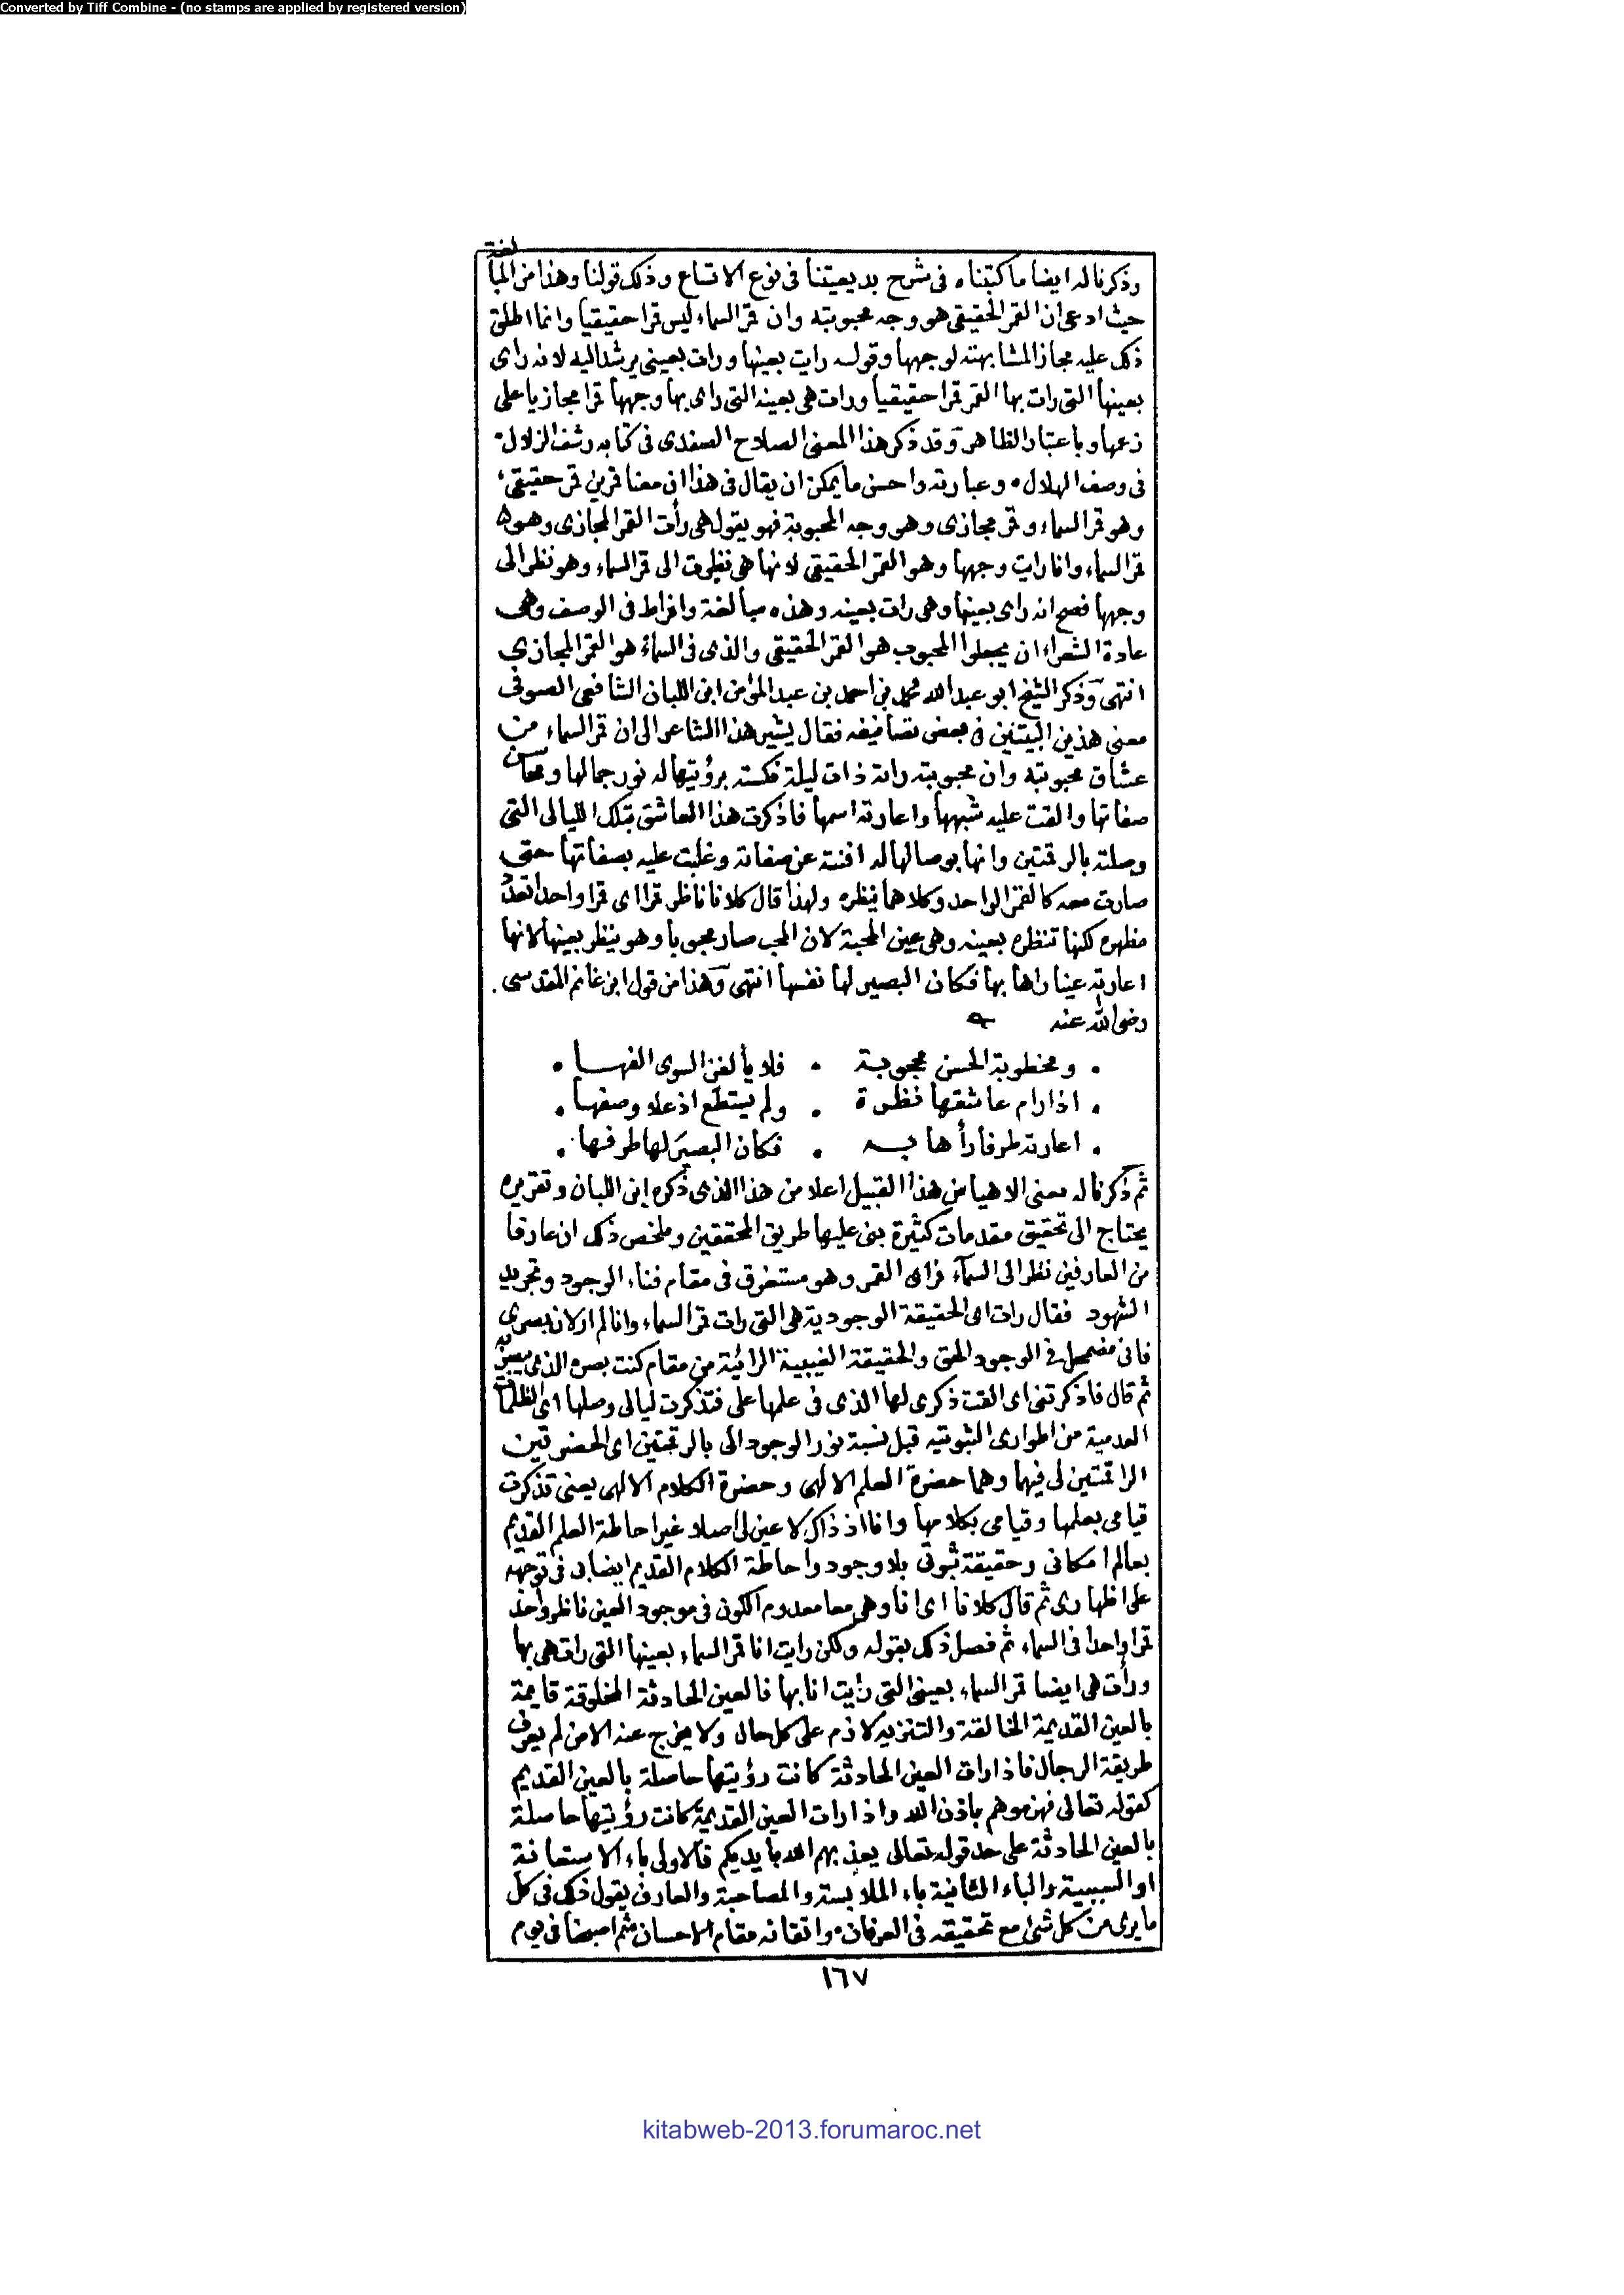 Converted by Tiff Combine - (no stamps are applied by registered version)
وذكرنا له ايضا ما كتبناه فى شرح بديعيتنا فى نوع الاتساع وذلك قولنا وهذا من المبالغة
حيث ادعى ان القمر الحقيقى هو وجه محبوبته وان قمر السماء ليس قمرا حقيقيا وانما اطلق
ذلك عليه مجازا لمشابهته لوجهها وقوله رايت بعينها ورات بعينى يرشد اليه لانه راى
بعينها التى رات بها القمر قمرا حقيقيا ورات هى بعينه التى راى بها وجهها قمرا مجازيا على
زعمها وباعتبار الظاهر وقد ذكر هذا المعنى الصلاح الصفدى فى كتابه رشف الزلال
فى وصف الهلال وعبارته واحسن ما يمكن ان يقال فى هذا ان معنا قمرين قمر حقيقى
وهو قمر السماء وقمر مجازى وهو وجه المحبوبة فهو يقول هى رأت القمر المجازى وهو
قمر السماء وانا رايت وجهها وهو القمر الحقيقى لانها هى نظرت الى قمر السماء وهو نظر الى
وجهها فصح انه راى بعينها وهى رات بعينه وهذه مبالغة وافراط فى الوصف وهى
عادة الشعراء ان يجعلوا المحبوب هو القمر الحقيقى والذى فى السماء هو القمر المجازي
انتهى وذكر الشيخ ابو عبد الله محمد بن احمد بن عبد المؤمن ابن اللبان الشافعى الصوفى
معنى هذين البيتين فى بعض تصانيفه فقال يشير هذا الشاعر الى ان قمر السماء من
عشاق محبوبته وان محبوبته راته ذات ليلة فكسته برؤيتها له نور جمالها ومحاسن
صفاتها والقت عليه شبهها واعارته اسمها فاذكرت هذا العاشق بتلك الليالى التى
وصلته بالرقمتين وانها بوصالها له افنته عن صفاته وغلبت عليه بصفاتها حتى
صارت معه كالقمر الواحد وكلاهما ينظره ولهذا قال كلانا ناظر قمرا اى قمرا واحدا تعدد
مظهره لكنها تنظره بعينه وهى عين المحبة لان المحب صار محبوبا وهو ينظر بعينها لانها
اعارته عينا راها بها فكان البصير لها نفسها انتهى وهذا من قول ابن غانم المقدسى
رضى الله عنه
ومخطوبة الحسن محجوبة فلا يألفن السوى الفها
اذا رام عاشقها نظرة ولم يستطع اذ علا وصفها
اعارته طرفا رأها به فكان البصير لها طرفها
ثم ذكرنا له معنى الاهيا من هذا القبيل اعلا من هذا الذى ذكره ابن اللبان وتقريره
يحتاج الى تحقيق مقدمات كثيرة بنى عليها طريق المحققين وملخص ذلك ان عارفا
من العارفين نظر الى السماء فراى القمر وهو مستغرق فى مقام فناء الوجود وتجريد
الشهود فقال رات اى الحقيقة الوجودية هى التى رات قمر السماء وانا لم ار لان بصرى
فانى مضمحل فى الوجود الحق والحقيقة الغيبية الرائية من مقام كنت بصره الذى يبصر به
ثم قال فاذكرتنى اى القت ذكرى لها الذى فى علمها على فتذكرت ليالى وصلها اى الظلمات
العدمية من اطوارى الثبوتيه قبل نسبة نور الوجود الى بالرقمتين اى الحضرتين
الراقمتين لى فيها وهما حضرة العلم الالهى وحضرة الكلام الالهى يعنى تذكرت
قيامى بعلمها وقيامى بكلامها وانا اذ ذاك لا عين لى اصلا غير احاطة العلم القديم
بعالم امكانى وحقيقة ثبوتى بلا وجود واحاطة الكلام القديم ايضا بى فى توجهه
على اظهارى ثم قال كلانا اى انا وهى معا معدوم الكون فى موجود العين ناظر واحد
قمرا واحدا فى السماء ثم فصل ذلك بقوله ولكن رايت انا قمر السماء بعينها التى رات هى بها
ورأت هى ايضا قمر السماء بعينى التى رأيت انا بها فالعين الحادثة المخلوقة قايمة
بالعين القديمة الخالقة والتنزيه لازم على كل حال ولا يخرج عنه الا من لم يعرف
طريقة الرجال فاذا رات العين الحادثة كانت رؤيتها حاصلة بالعين القديم
كقوله تعالى فهزموهم باذن الله واذا رات العين القديمة كانت رؤيتها حاصلة
بالعين الحادثة على حد قوله تعالى يعذبهم الله بايديكم فالاولى باء الاستعانة
او السببية والباء الثانية باء الملابسة والمصاحبة والعارف يقول ذلك فى كل
ما يرى من كل شئ مع تحقيقه فى العرفان واتقانه مقام الاحسان ثم اصبحنا فى يوم
١٦٧
kitabweb-2013.forumaroc.net